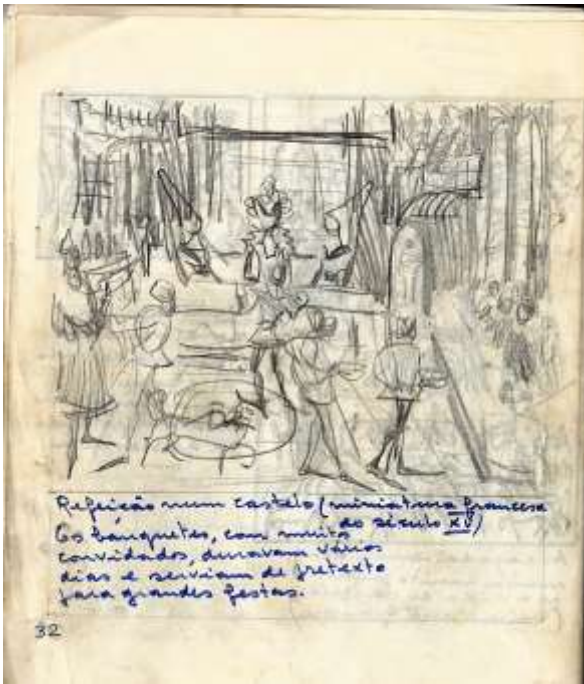 Refeição num castelo (miniatura francesa
do século XV)
Os banquetes, com muitos
convidados, duravam vários
dias e serviam de pretexto
para grandes festas.
32